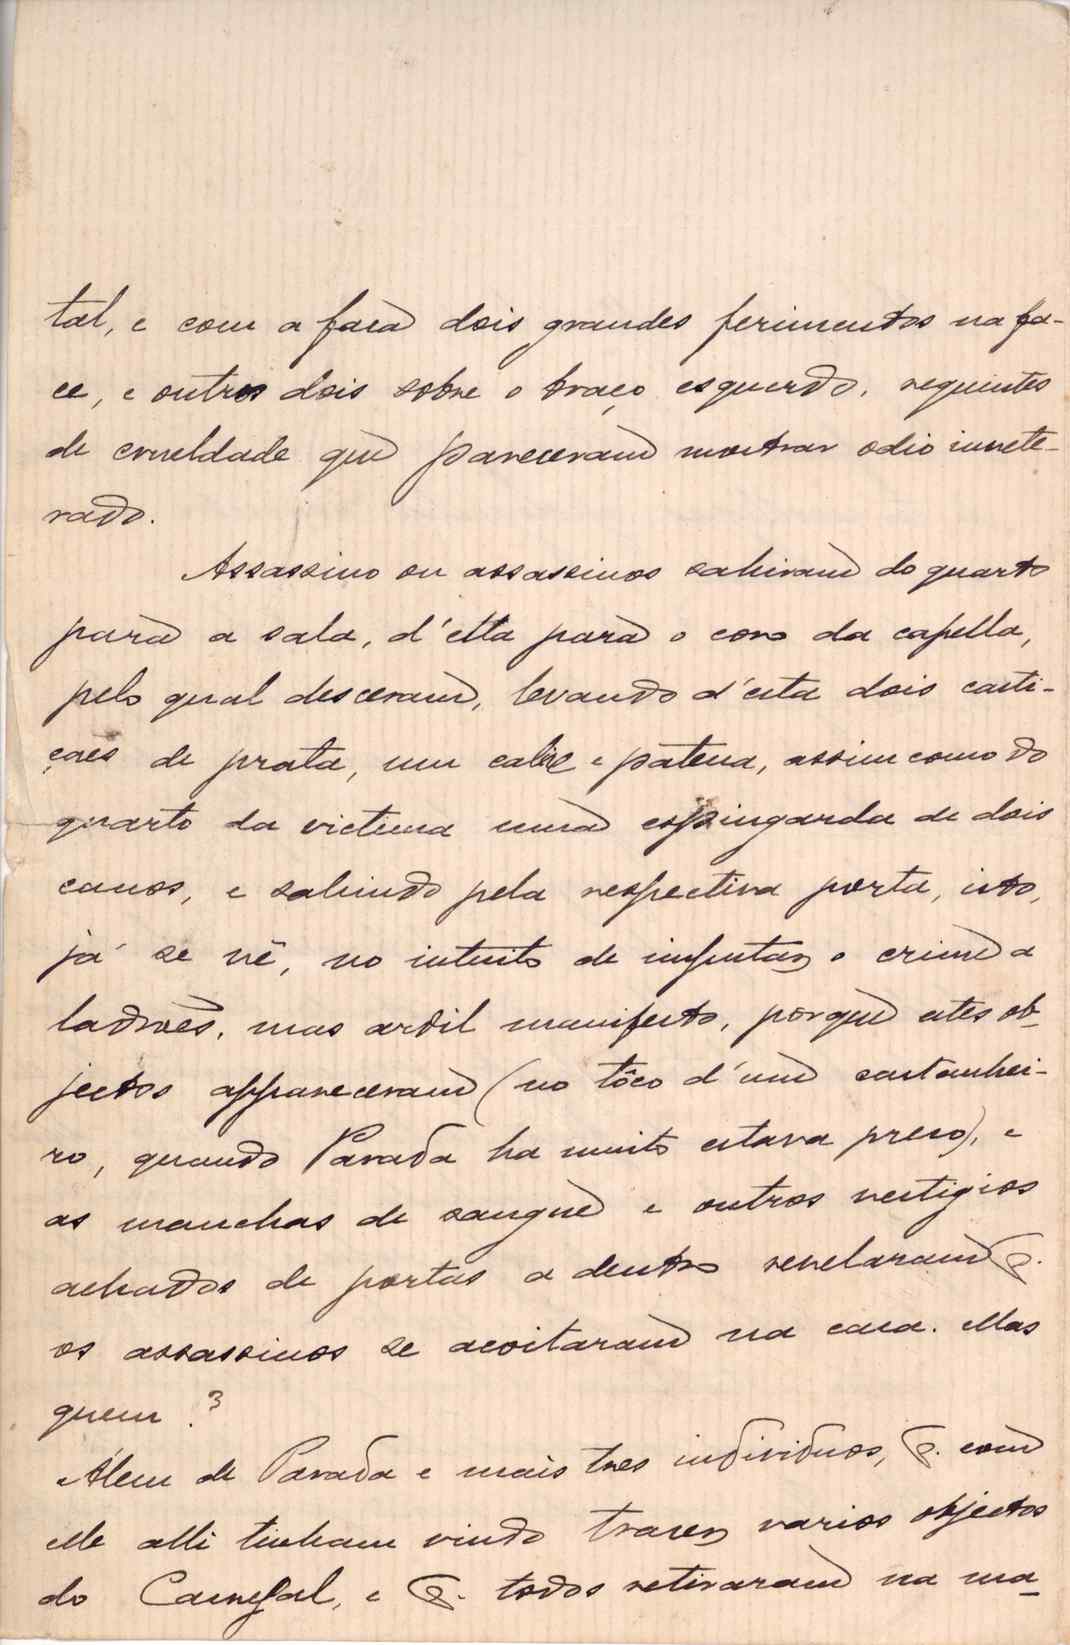 tal, e com a faca dois grandes ferimentos na fa-
ce, e outros dois sobre o braço esquerdo, requintes
de crueldade que pareceram mostrar odio invete-
rado.
Assassino ou assassinos sahiram do quarto
para a sala, d'ella para o coro da capella,
pelo qual desceram, levando d'esta dois casti-
çaes de prata, um calix e patena, assim como do
quarto da victima uma espingarda de dois
canos, e sahindo pela respectiva porta, isto,
já se vê, no intuito de imputar o crime a
ladrões, mas ardil manifesto, porque estes ob-
jectos appareceram (no tôco d'um castanhei-
ro, quando Parada ha muito estava preso), e
as manchas de sangue e outros vestigios
achados de portas a dentro revelaram q.
os assassinos se acoitaram na casa. Mas
quem?
Alem de Parada e mais tres individuos, q. com
elle alli tinham vindo trazer varios objectos
do , e q. todos retiraram na ma-